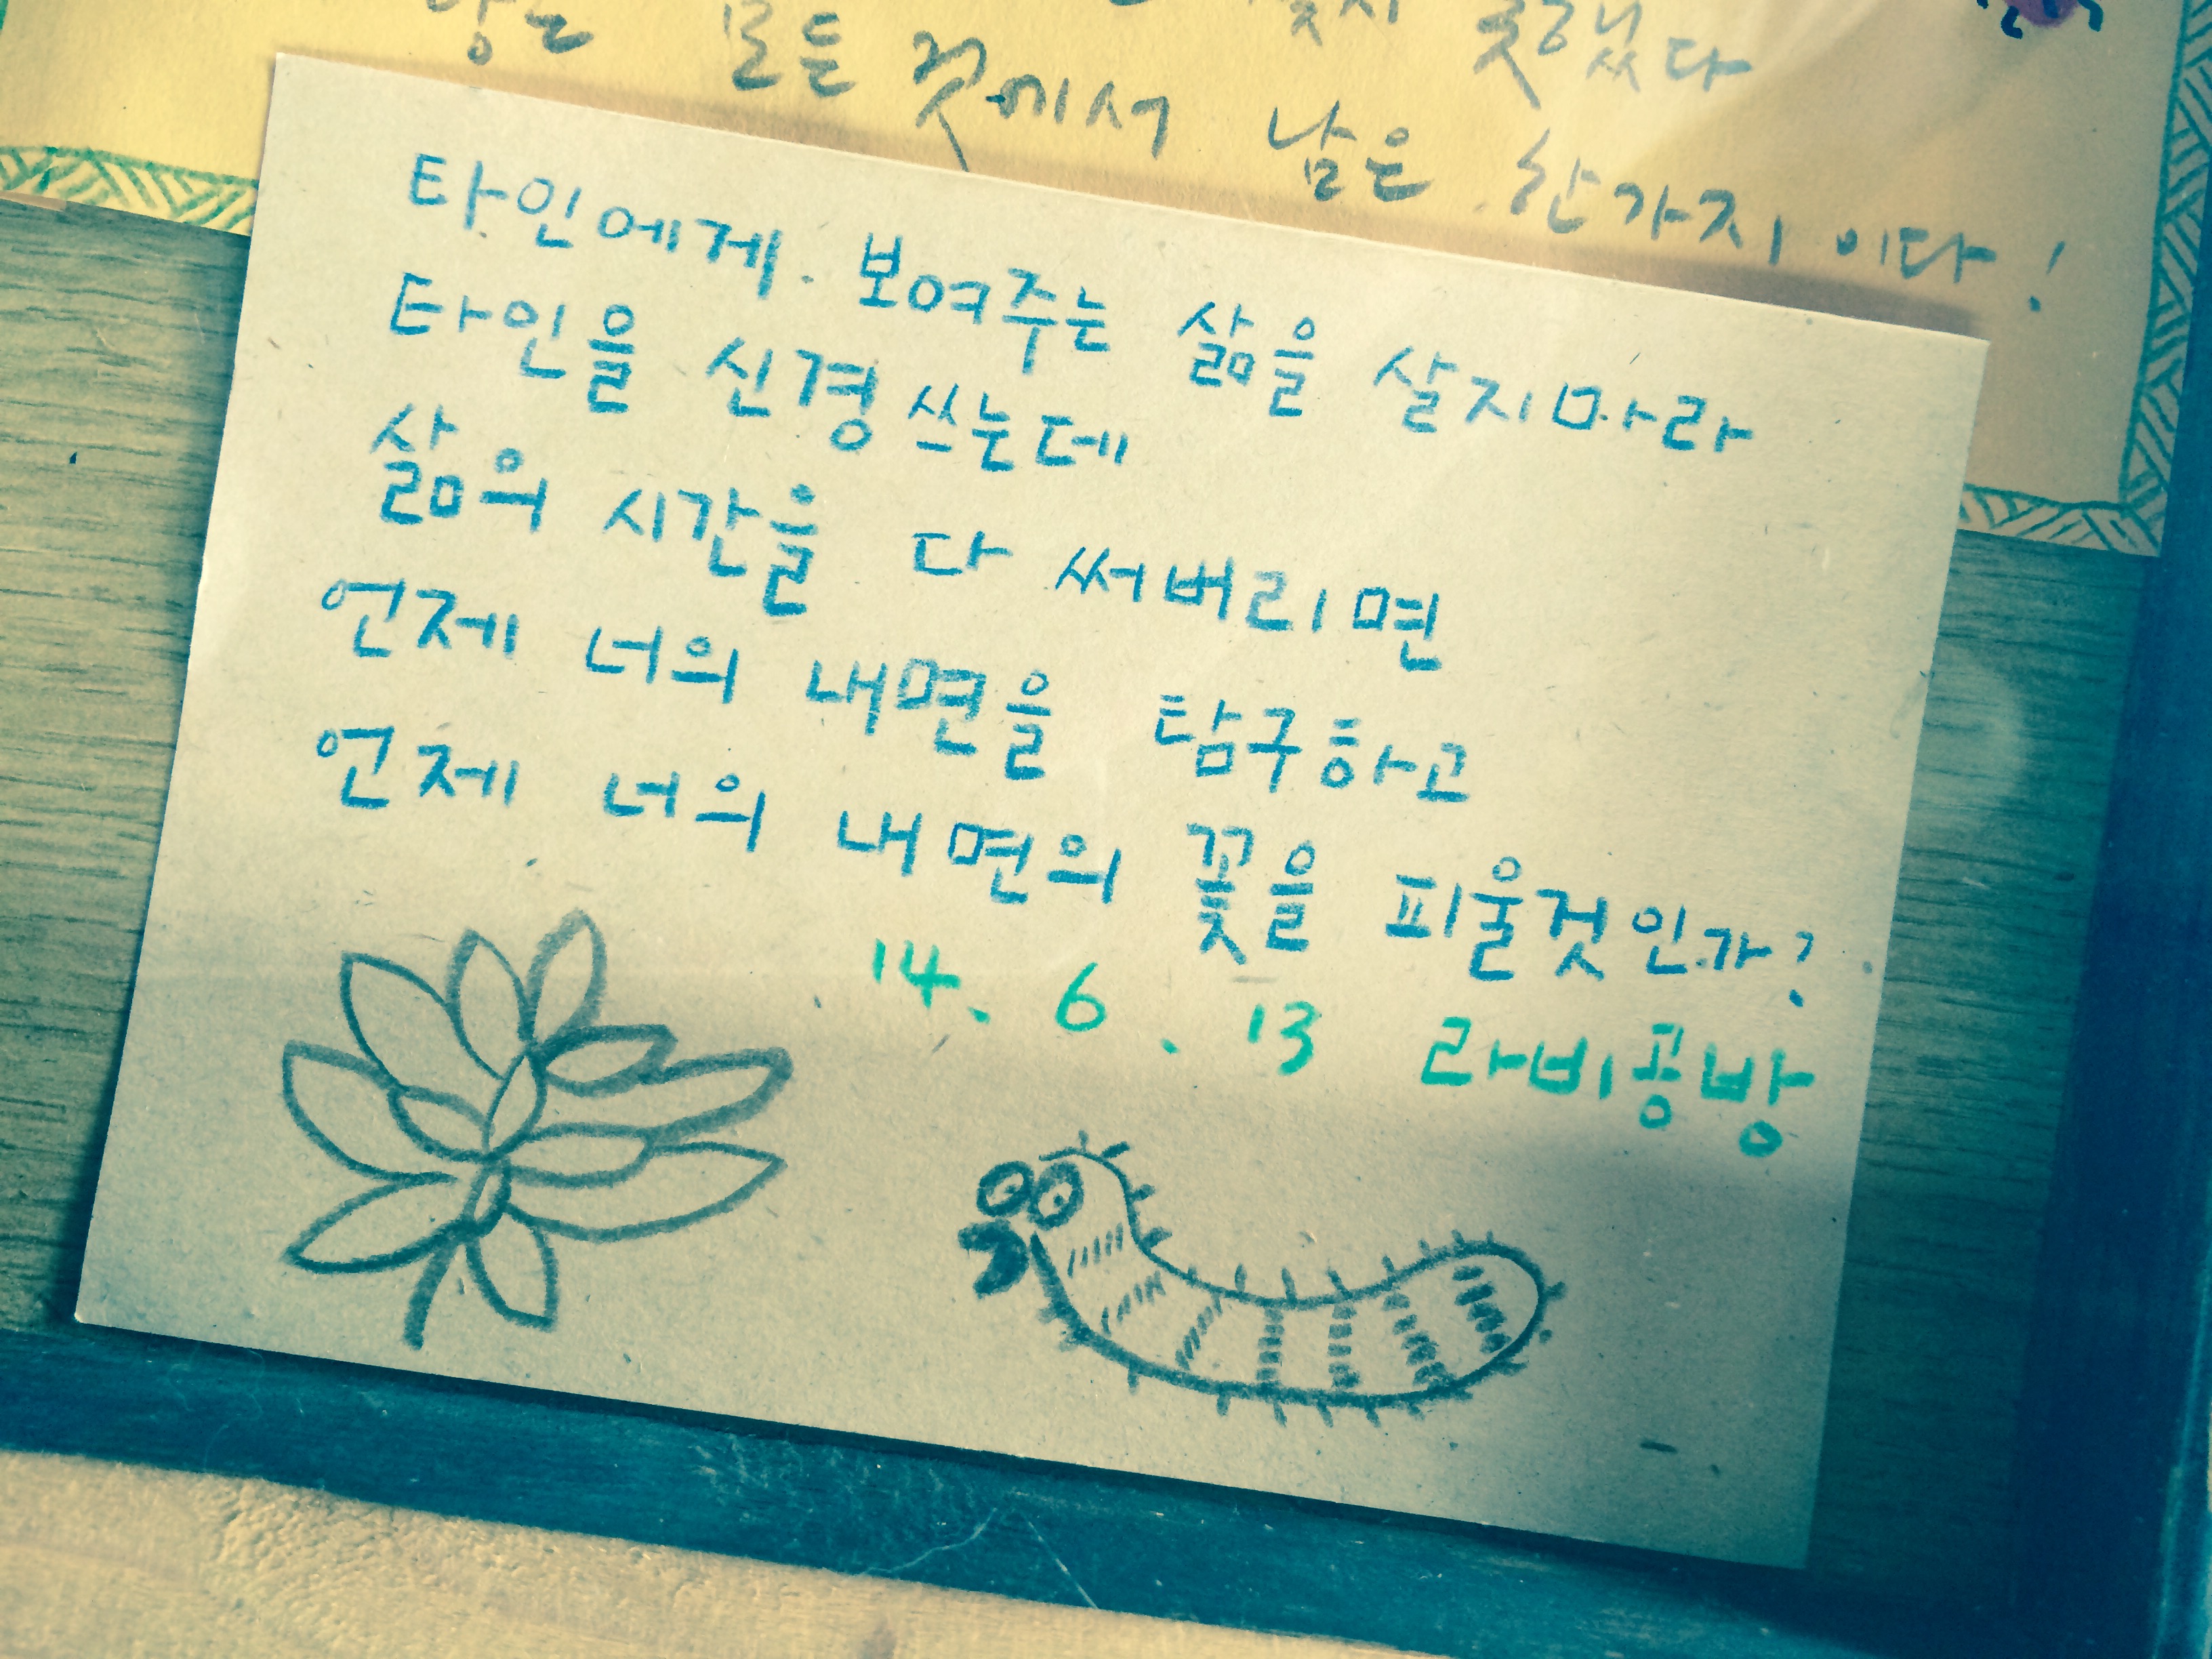 모든 것에서 남은 한가지 이다!
타인에게. 보여주는 삶을 살지마라
타인을 신경 쓰는데
삶의 시간을 다 써버리면
언제 너의 내면을 탐구하고
언제 너의 내면의 꽃을 피울것인가?
14. 6. 13 라비공방